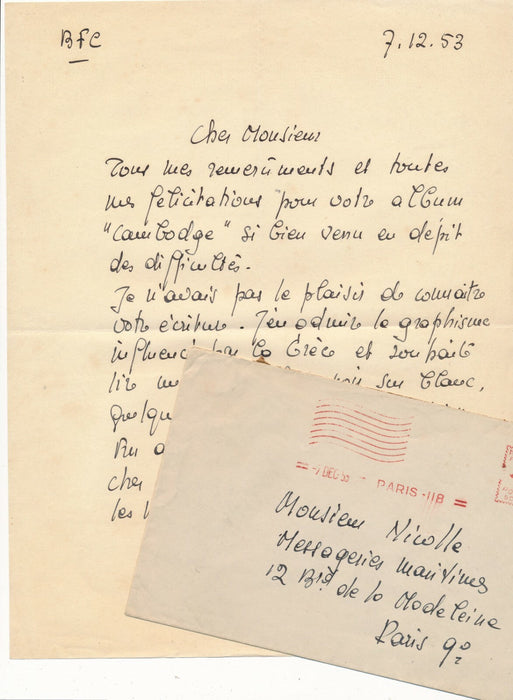 BFC
7.12.53
Cher Monsieur
Tous mes remerciments et toutes
mes felicitations pour votre album
"Cambodge" si bien venu en dépit
des difficultés.
Je n'avais pas le plaisir de connaitre
votre écriture. J'en admire le graphisme
influencé par la Grèce et souhaite
lire noir sur blanc,
quelqu
cher
les
7 DEC 53 PARIS-118
Monsieur Nicolle
Messageries maritimes
12 Brd de la Madeleine
Paris 9e